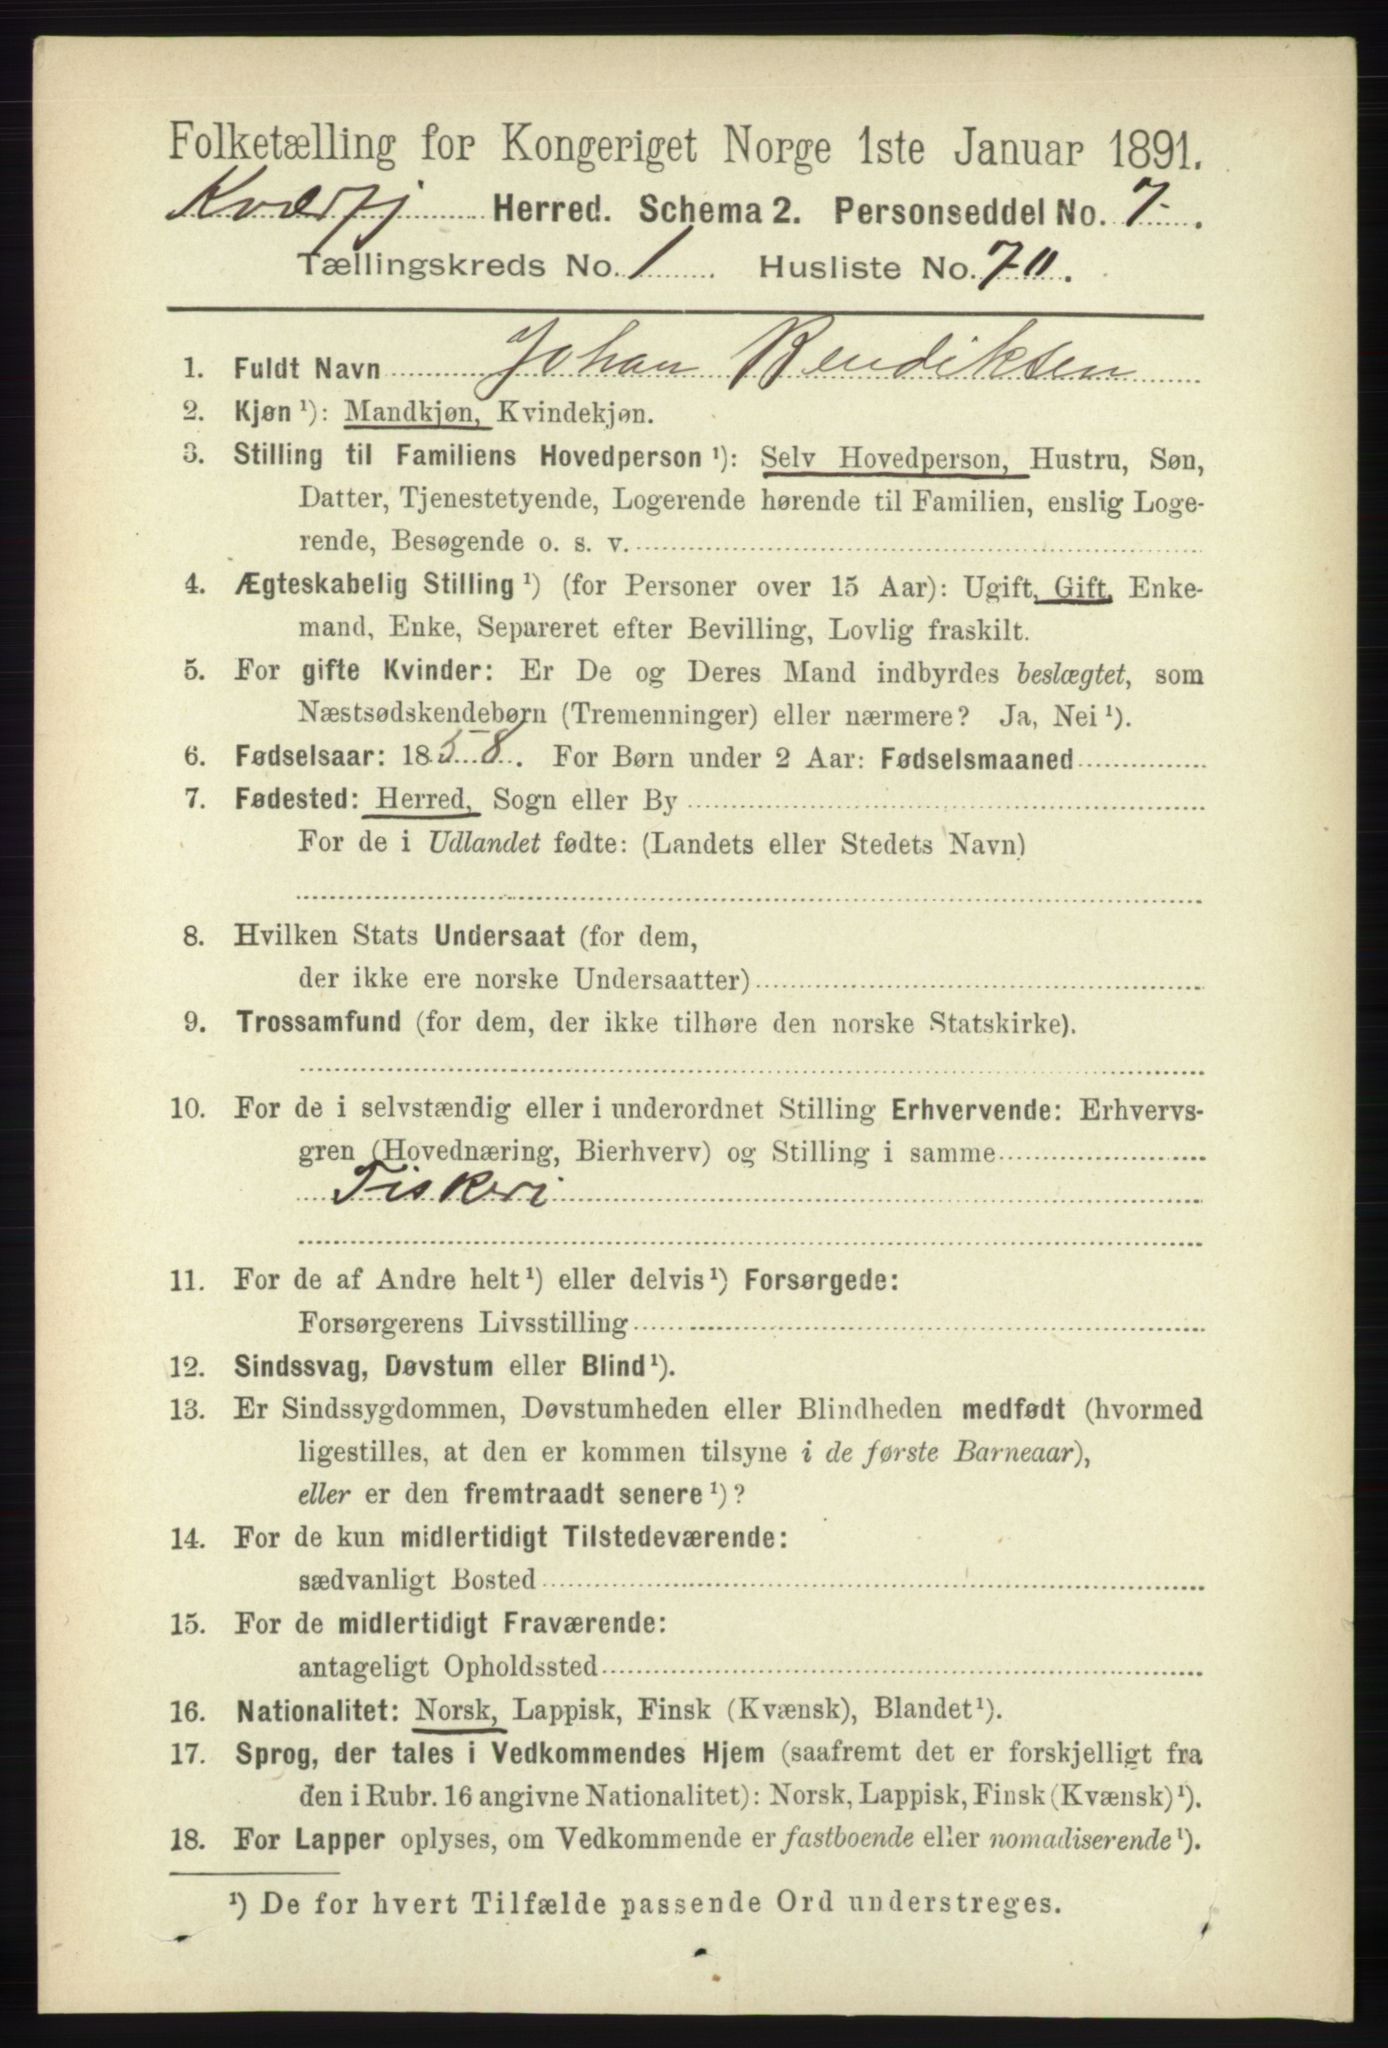 Folketælling for Kongeriget Norge 1ste Januar 1891.
Kværfj Herred. Schema 2. Personseddel No. 7.
Tællingskreds No. 1 Husliste No. 70.
1. Fuldt Navn Johan Bendiksen
2. Kjøn ¹): Mandkjøn, Kvindekjøn.
3. Stilling til Familiens Hovedperson ¹): Selv Hovedperson, Hustru, Søn,
Datter, Tjenestetyende, Logerende hørende til Familien, enslig Loge-
rende, Besøgende o. s. v.
4. Ægteskabelig Stilling ¹) (for Personer over 15 Aar): Ugift, Gift, Enke-
mand, Enke, Separeret efter Bevilling, Lovlig fraskilt.
5. For gifte Kvinder: Er De og Deres Mand indbyrdes beslægtet, som
Næstsødskendebørn (Tremenninger) eller nærmere? Ja, Nei ¹).
6. Fødselsaar: 1858. For Børn under 2 Aar: Fødselsmaaned
7. Fødested: Herred, Sogn eller By
For de i Udlandet fødte: (Landets eller Stedets Navn)
8. Hvilken Stats Undersaat (for dem,
der ikke ere norske Undersaatter)
9. Trossamfund (for dem, der ikke tilhøre den norske Statskirke).
10. For de i selvstændig eller i underordnet Stilling Erhvervende: Erhvervs-
gren (Hovednæring, Bierhverv) og Stilling i samme
Fiskeri
11. For de af Andre helt ¹) eller delvis ¹) Forsørgede:
Forsørgerens Livsstilling
12. Sindssvag, Døvstum eller Blind ¹).
13. Er Sindssygdommen, Døvstumheden eller Blindheden medfødt (hvormed
ligestilles, at den er kommen tilsyne i de første Barneaar),
eller er den fremtraadt senere ¹)?
14. For de kun midlertidigt Tilstedeværende:
sædvanligt Bosted
15. For de midlertidigt Fraværende:
antageligt Opholdssted
16. Nationalitet: Norsk, Lappisk, Finsk (Kvænsk), Blandet ¹).
17. Sprog, der tales i Vedkommendes Hjem (saafremt det er forskjelligt fra
den i Rubr. 16 angivne Nationalitet): Norsk, Lappisk, Finsk (Kvænsk) ¹).
18. For Lapper oplyses, om Vedkommende er fastboende eller nomadiserende ¹).
¹) De for hvert Tilfælde passende Ord understreges.